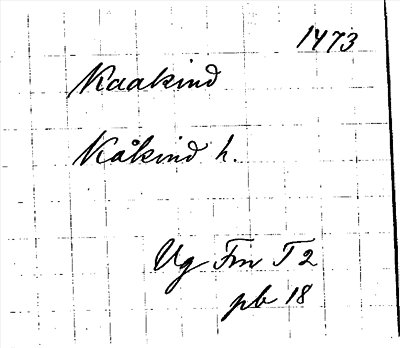 1473
Kaakind
Kåkind h.
Ug Fm T 2
pb 18